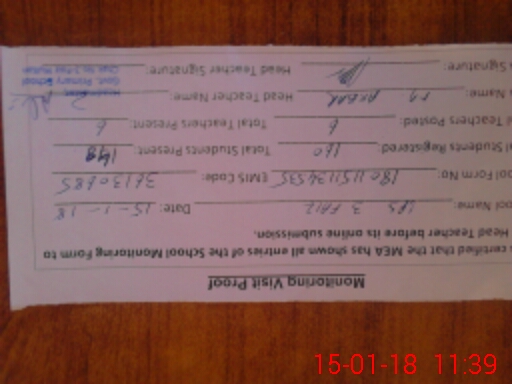 Monitoring Visit Proof
s certified that the MEA has shown all entries of the School Monitoring Form to
Head Teacher before its online submission.
ool Name: GPS 3 Date: 15-1-18
ool Form No: EMIS Code: 36130685
l Students Registered: 160 Total Students Present: 148
l Teachers Posted: 6 Total Teachers Present: 6
Name: AKBAR Head Teacher Name:
Signature: Head Teacher Signature:
Govt. Primary School
15-01-18 11:39